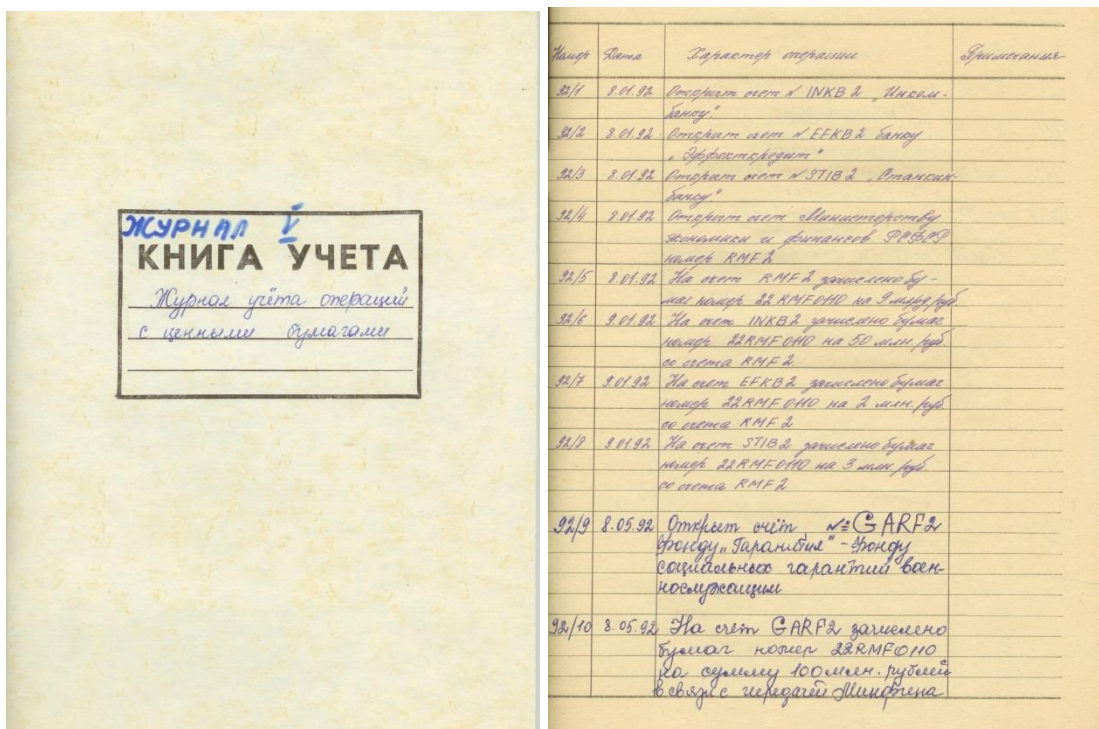 ЖУРНАЛ V
КНИГА УЧЕТА
Журнал учёта операций
с ценными бумагами
Номер Дата Характер операции Примечания
92/1 8.01.92 Открыт счет № INKB2 „Инком-
банку"
92/2 8.01.92 Открыт счет № EFKB2 банку
„Эффекткредит"
92/3 8.01.92 Открыт счет № STIB2 „Станкин-
банку"
92/4 8.01.92 Открыт счет Министерству
экономики и финансов РСФСР
номер RMF2
92/5 8.01.92 На счет RMF2 зачислено бу-
маг номер 22RMF0110 на 9 млрд руб
92/6 9.01.92 На счет INKB2 зачислено бумаг
номер 22RMF0110 на 50 млн. руб.
со счета RMF2
92/7 9.01.92 На счет EFKB2 зачислено бумаг
номер 22RMF0110 на 2 млн. руб.
со счета RMF2
92/8 9.01.92 На счет STIB2 зачислено бумаг
номер 22RMF0110 на 3 млн. руб.
со счета RMF2
92/9 8.05.92 Открыт счёт № GARF2
фонду „Гарантия" - Фонду
социальных гарантий воен-
нослужащим
92/10 8.05.92 На счёт GARF2 зачислено
бумаг номер 22RMF0110
на сумму 100 млн. рублей
в связи с передачей Минфина